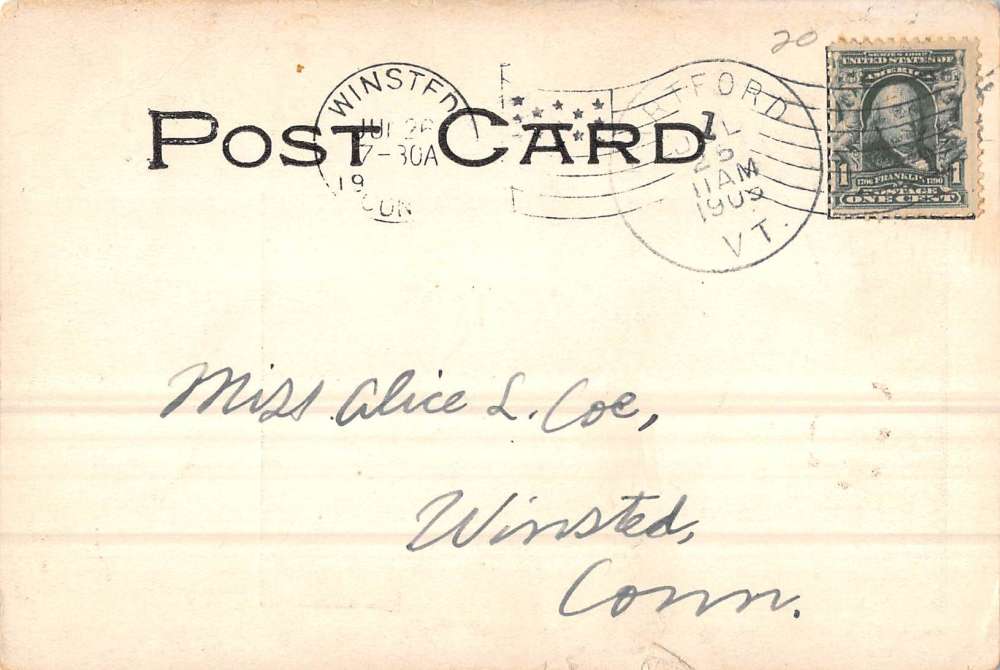 20
SERIES 1902
UNITED STATES OF
AMERICA
1 1
1706 FRANKLIN 1790
POSTAGE
ONE CENT
WINSTED
JUL 26
7-30A
19
CONN
RTFORD
JL
25
11AM
1905
VT.
1
POST CARD
Miss Alice L. Coe,
Winsted,
Conn.